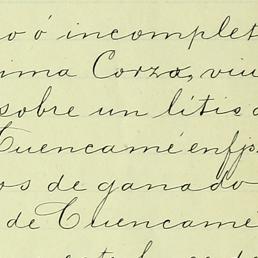 o ó incomplet
ima Corzo, viu
sobre un litis
Cuencamé enfjs.
os de ganado
de Cuencamé